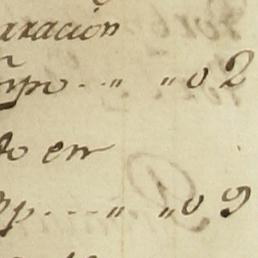 aracion
mpo..." "02
to en
pp...." "09